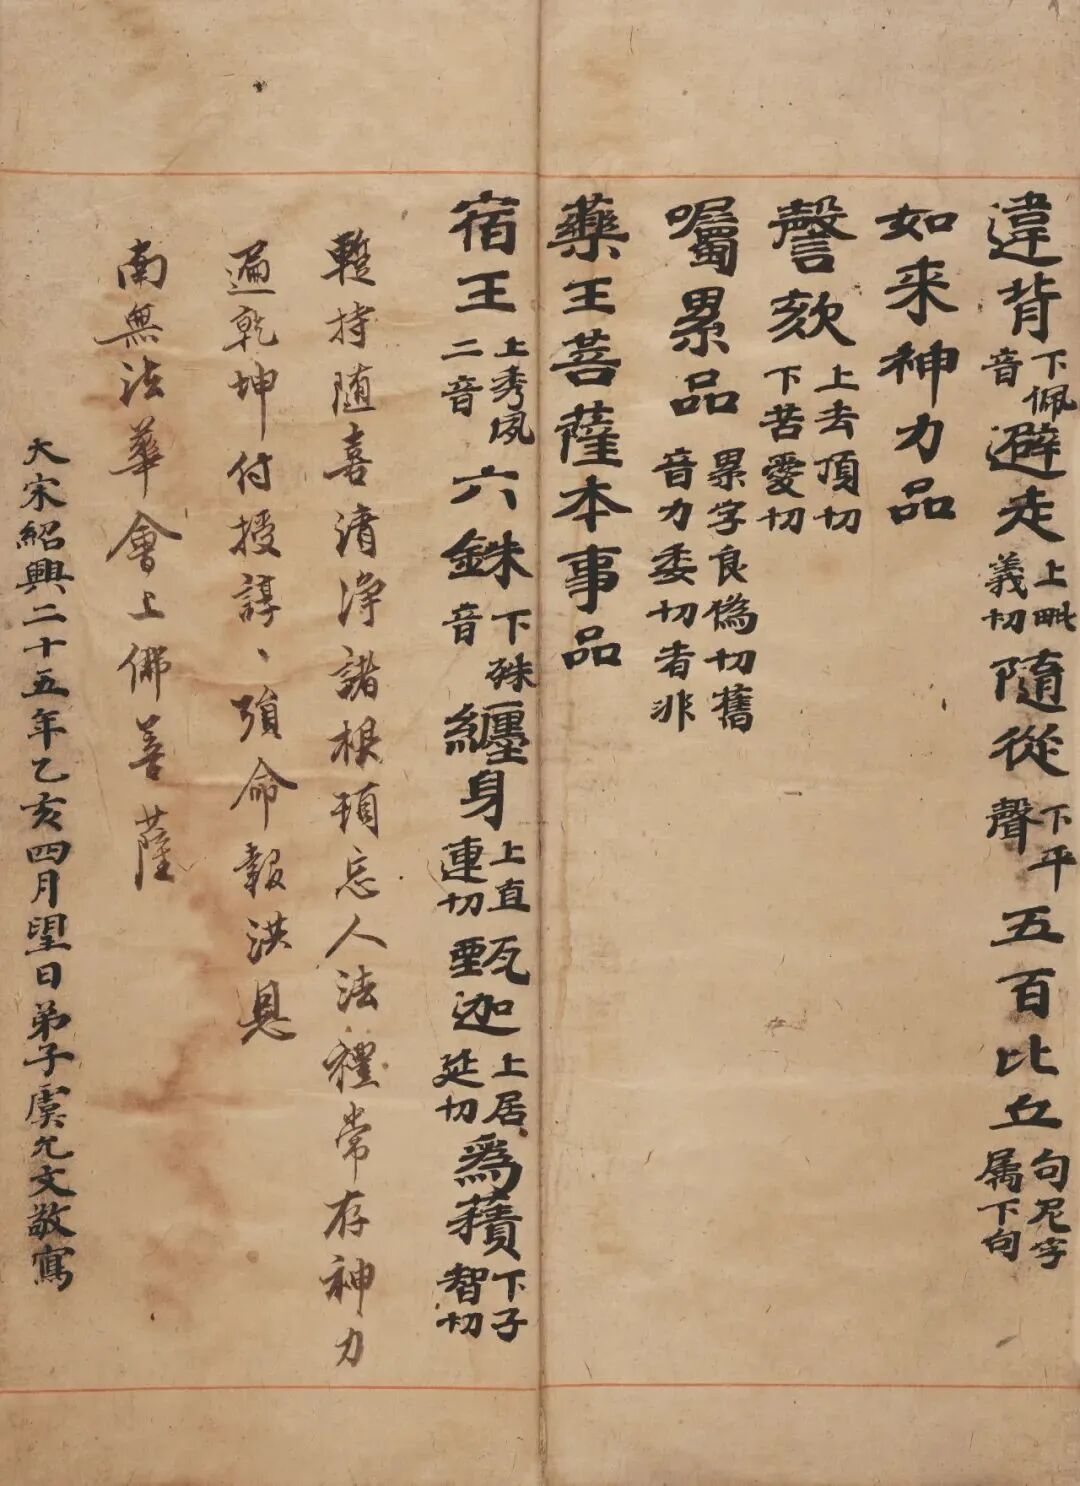 違背下佩音避走上毗義切隨從下平聲五百比丘句尼字属下句
如来神力品
謦欬上去頂切下苦愛切
囑累品累字良偽切舊音力委切者非
藥王菩薩本事品
宿王上秀夙二音六銖下殊音纏身上直連切甄迦上居延切為䔳下子智切
蹔持随喜清淨諸根頊忘人法種常存神力
遍乾坤付授諄、須命報洪恩
南無法華會上佛菩薩
大宋紹興二十五年乙亥四月望日弟子虞允文敬寫